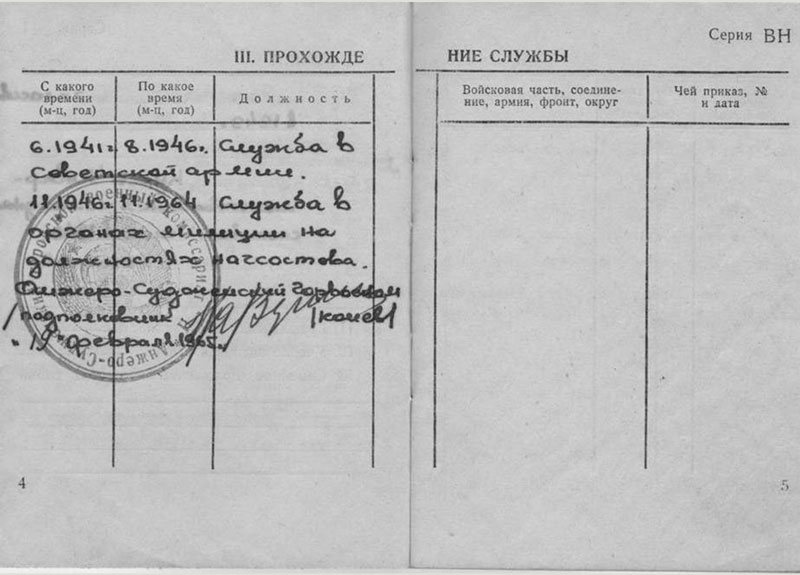 Серия ВН
III. ПРОХОЖДЕ
НИЕ СЛУЖБЫ
С какого
времени
(м-ц, год)
По какое
время
(м-ц, год)
Должность
Войсковая часть, соедине-
ние, армия, фронт, округ
Чей приказ, №
и дата
6.1941г. 8.1946г. Служба в
Советской армии.
11.1946г 11.1964 Служба в
органах милиции на
должностях начсостава.
Анжеро-Судженский Горвоенком
/подполковник
"19" февраля 1965г.
4
5